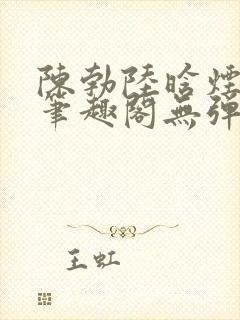 陳勃陸晗煙
筆趣閣無彈
王虹